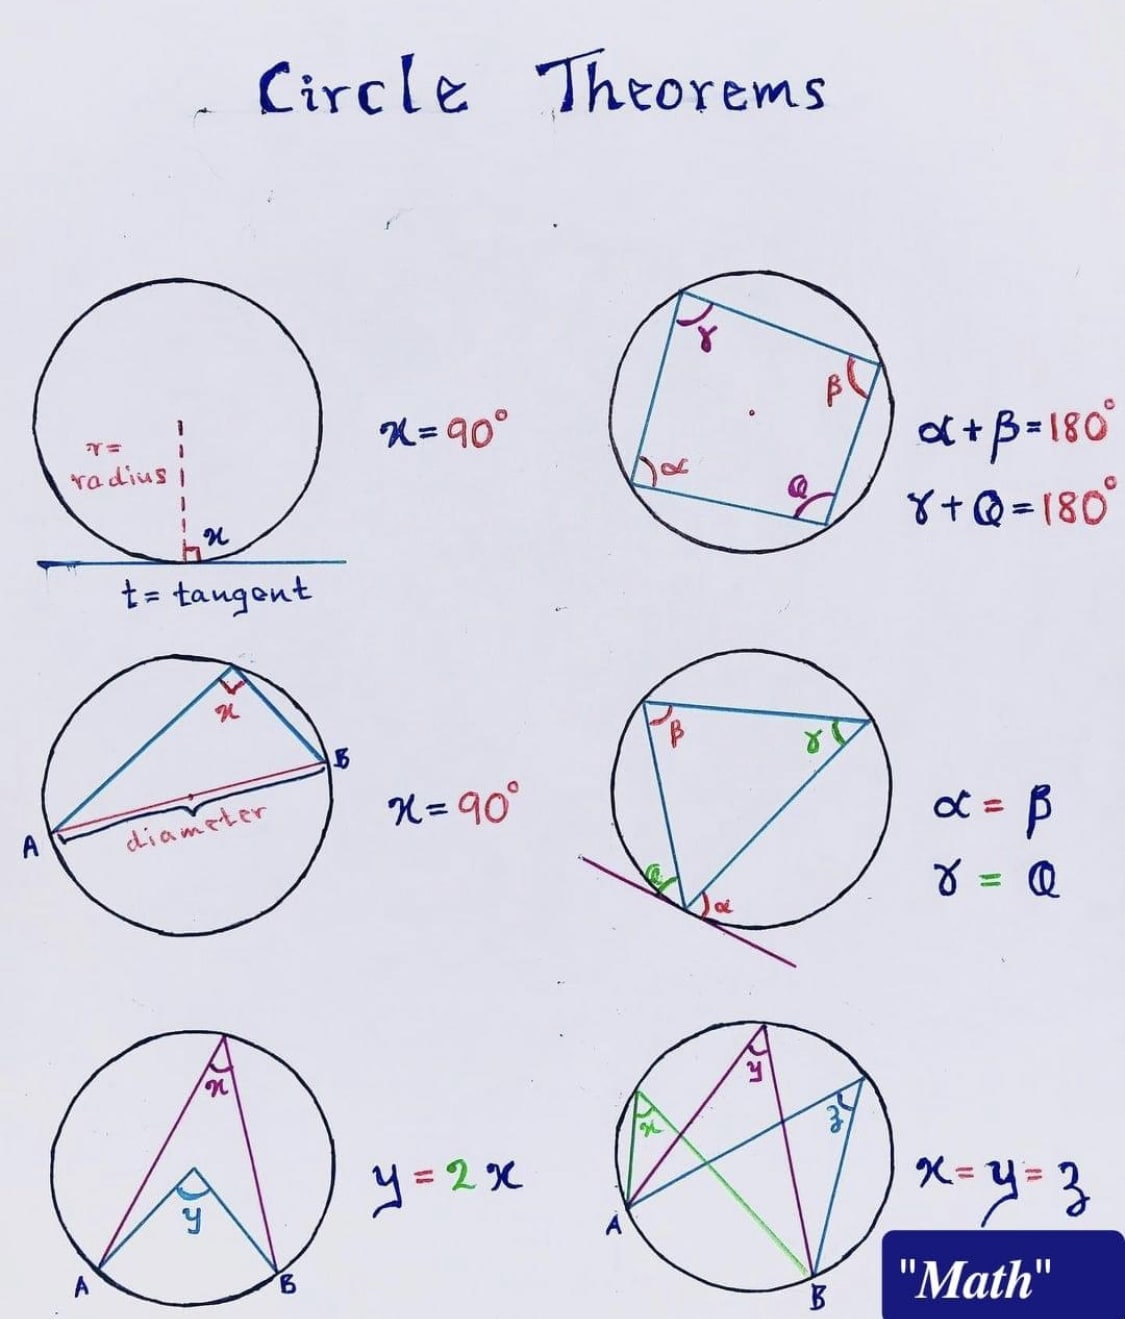 Circle Theorems
r=
radius
x
t= tangent
x=90°
γ
β
α
Q
α+β=180°
γ+Q=180°
x
B
A
diameter
x=90°
β
γ
Q
α
α = β
γ = Q
x
y
A
B
y=2x
y
x
z
A
B
x=y=z
"Math"